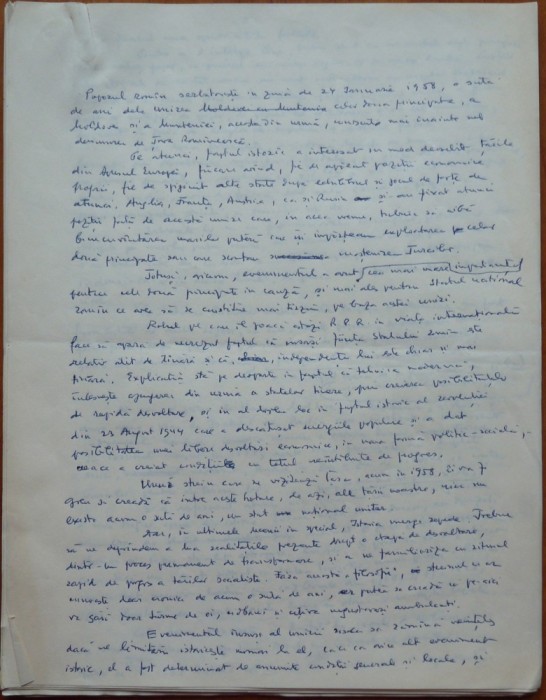 Poporul român sărbătorește în ziua de 24 Ianuarie 1958, o sută
de ani dela unirea Moldovei cu Muntenia celor două principate, a
Moldovei și a Munteniei, acesta din urmă, cunoscută mai înainte sub
denumirea de Țara Românească.
Pe atunci, faptul istoric a interesat în mod deosebit țările
din Apusul Europei, fiecare având, fie de apărat poziții economice
proprii, fie de sprijinit alte state după
atunci. Anglia, Franța, Austria, ca și Rusia și-au fixat atunci
poziții față de această unire care, în acea vreme, trebuia să aibă
binecuvântarea marilor puteri care își împărțeau exploatarea celor
două principate sau sub suzeranitatea Turcilor.
Totuși, oricum, evenimentul a avut cea mai mare importanță
pentru cele două principate în cauză, și mai ales pentru Statul național
român ce avea să se constitue mai târziu, pe baza acestei uniri.
Rolul pe care îl joacă astăzi R.P.R. în viața internațională
face în afara de necrezut faptul că însăși ființa Statului român este
relativ atît de tînără și că, independența lui este chiar și mai
tînără. Explicația stă pe deoparte în faptul că tehnica modernă,
înlesnește ajungerea din urmă a statelor tinere, prin crearea posibilităților
de rapidă dezvoltare, și în al doilea loc în faptul istoric al revoluției
din 23 August 1944 care a descătușat energiile populare și a dat
posibilitatea unei libere desvoltări economice, în noua formă politico-socială,
ceeace a creiat condiții cu totul de progres.
Unui străin care ne vizitează țara, acum în 1958, îi va fi
greu să creadă că între aceste hotare, de azi, ale țării noastre, nu
exista acum o sută de ani, un stat național unitar.
Azi, în ultimele decenii în special, Istoria merge repede. Trebue
să ne deprindem a lua realitățile prezente drept o etapă de desvoltare,
dintr-un proces permanent de transformare, și a ne familiariza cu ritmul
rapid de progres a țărilor socialiste. Fără această „filosofie", străinul ce ar
cunoaște doar cronica de acum o sută de ani, ar putea să creadă că pe aici
va găsi doar turme de oi, ciobani și câțiva negustori ambulanți.
Evenimentul însuși al unirii
dacă ne limităm istoricește numai la el, căci ca orice alt eveniment
istoric, el a fost determinat de anumite condiții generale și locale, și